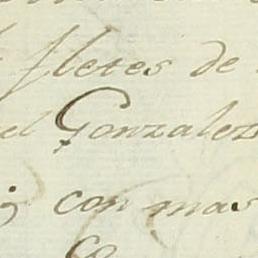 fletes de
el Gonzalez
con mas